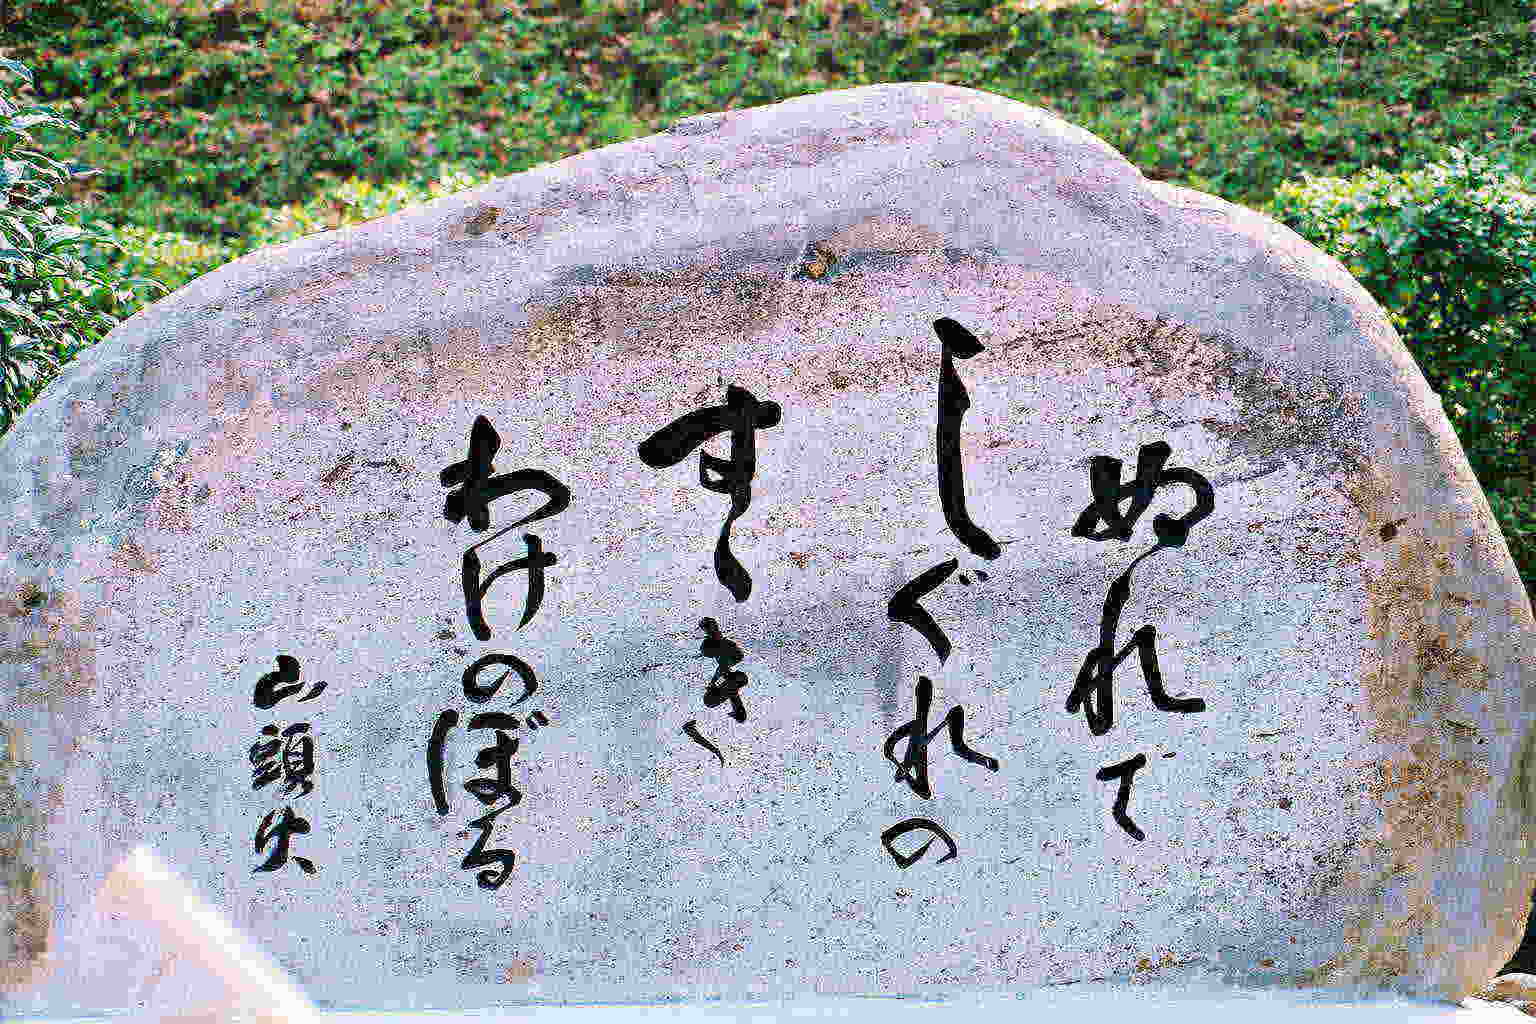 ぬれて
しぐれの
すゝき
わけのぼる
山頭火